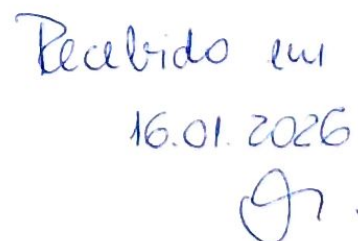 Recebido em
16.01.2026